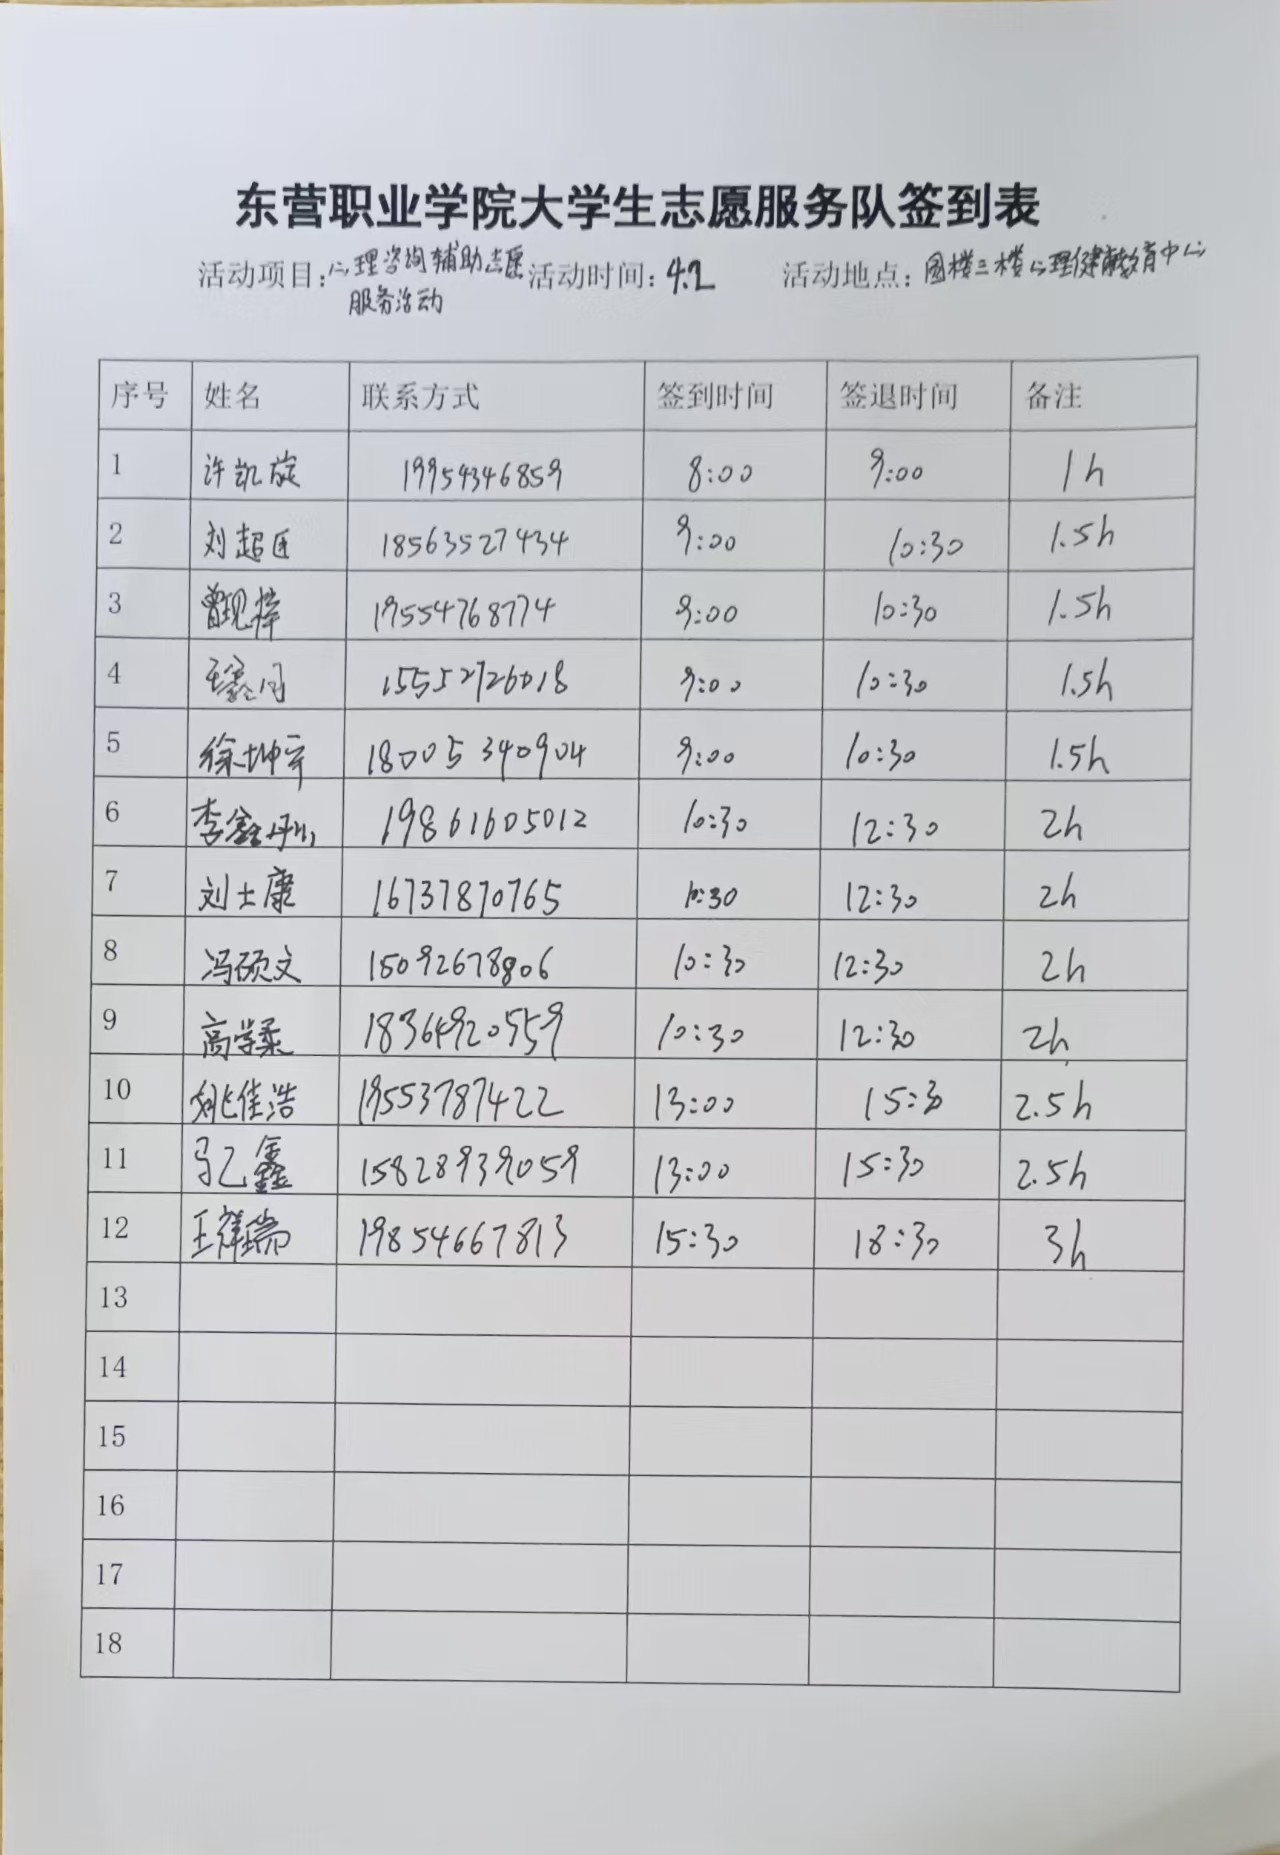 东营职业学院大学生志愿服务队签到表
活动项目:心理咨询辅助志愿服务活动 活动时间:4.2 活动地点:图楼三楼心理健康教育中心
序号 姓名 联系方式 签到时间 签退时间 备注
1 许凯旋 19954346859 8:00 9:00 1h
2 刘超 18563527434 9:00 10:30 1.5h
3 曾现梓 19554768774 9:00 10:30 1.5h
4 15552726018 9:00 10:30 1.5h
5 徐坤宇 18005340904 9:00 10:30 1.5h
6 李鑫 19861605012 10:30 12:30 2h
7 刘士康 16737870765 10:30 12:30 2h
8 冯硕文 15092678806 10:30 12:30 2h
9 高学柔 18364920559 10:30 12:30 2h
10 姚佳浩 19553787422 13:00 15:30 2.5h
11 马乙鑫 15828939059 13:00 15:30 2.5h
12 王祥瑞 19854667813 15:30 18:30 3h
13
14
15
16
17
18